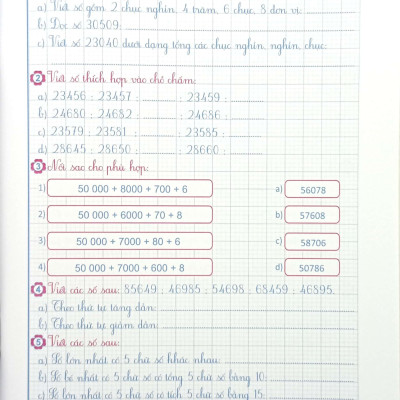 a) Viết số gồm 2 chục nghìn, 4 trăm, 6 chục, 8 đơn vị:
b) Đọc số 30509:
c) Viết số 23040 dưới dạng tổng các chục nghìn, nghìn, chục:
2 Viết số thích hợp vào chỗ chấm:
a) 23456 ; 23457 ; ............ ; 23459 ; ............
b) 24680 ; 24682 ; ............ ; 24686 ; ............
c) 23579 ; 23581 ; ............ ; 23585 ; ............
d) 28645 ; 28650 ; ............ ; 28660 ; ............
3 Nối sao cho phù hợp:
1) 50 000 + 8000 + 700 + 6 a) 56078
2) 50 000 + 6000 + 70 + 8 b) 57608
3) 50 000 + 7000 + 80 + 6 c) 58706
4) 50 000 + 7000 + 600 + 8 d) 50786
4 Viết các số sau: 85649 ; 46985 ; 54698 ; 68459 ; 46895.
a) Theo thứ tự tăng dần:
b) Theo thứ tự giảm dần:
5 Viết các số sau:
a) Số lớn nhất có 5 chữ số khác nhau:
b) Số bé nhất có 5 chữ số có tổng 5 chữ số bằng 10:
c) Số lớn nhất có 5 chữ số có tích 5 chữ số bằng 15: